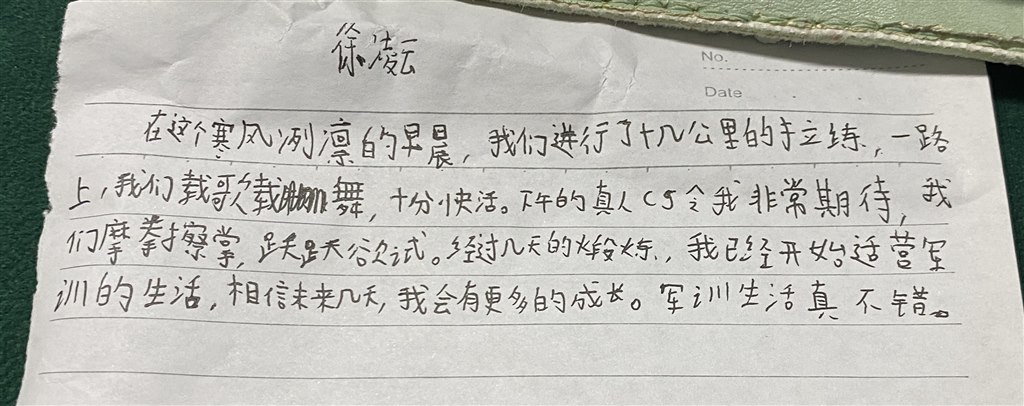 徐凌云
No.
Date
在这个寒风冽凛的早晨，我们进行了十几公里的手立练，一路
上，我们载歌载舞，十分快活。下午的真人CS令我非常期待，我
们摩拳擦掌，跃跃欲试。经过几天的煅炼，我已经开始适营军
训的生活，相信未来几天，我会有更多的成长。军训生活真不错。